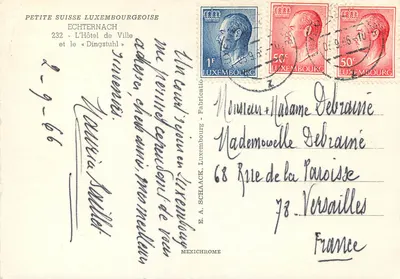 PETITE SUISSE LUXEMBOURGEOISE
ECHTERNACH
232 - L'Hôtel de Ville
et le « Dingstuhl »
2-9-66
Un court séjour en Luxembourg
me permet cependant de vous
adresser, chers amis, mes meilleurs
souvenirs.
E. A. SCHAACK, Luxembourg - Fabrication
MEXICHROME
1F
LUXEMBOURG
50c
LUXEMBOURG
50c
LUXEMBOURG
Monsieur & Madame Debraine
Mademoiselle Debrainé
68 Rue de la Paroisse
78. Versailles
France